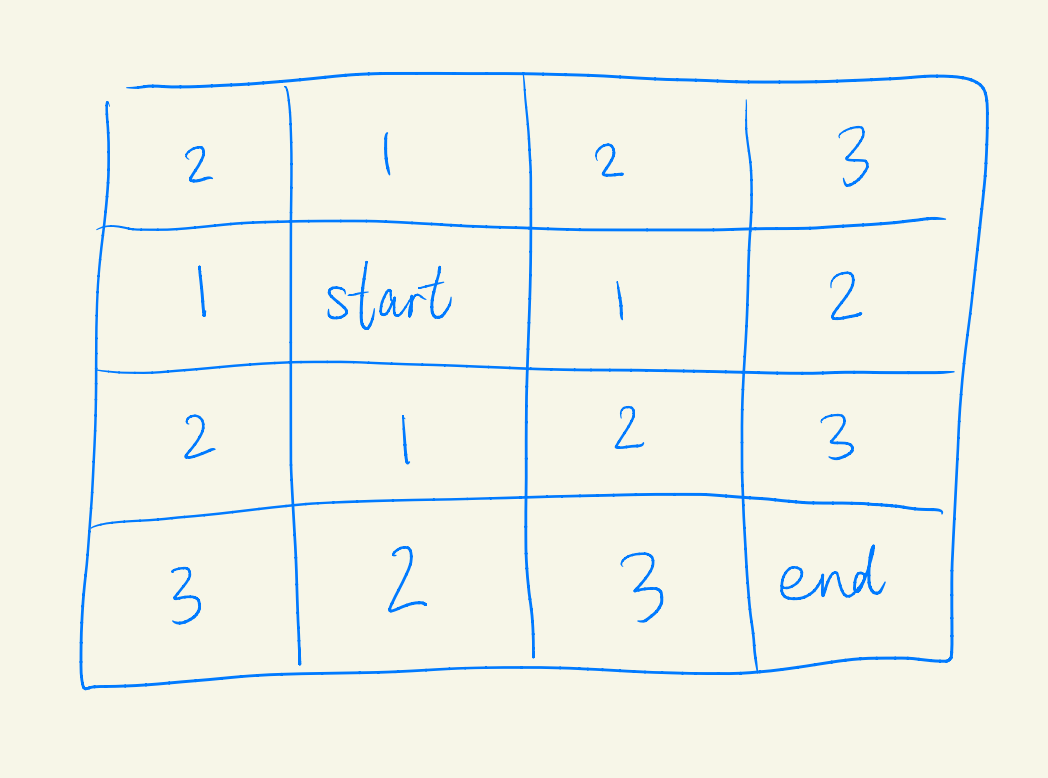 2 1 2 3
1 start 1 2
2 1 2 3
3 2 3 end